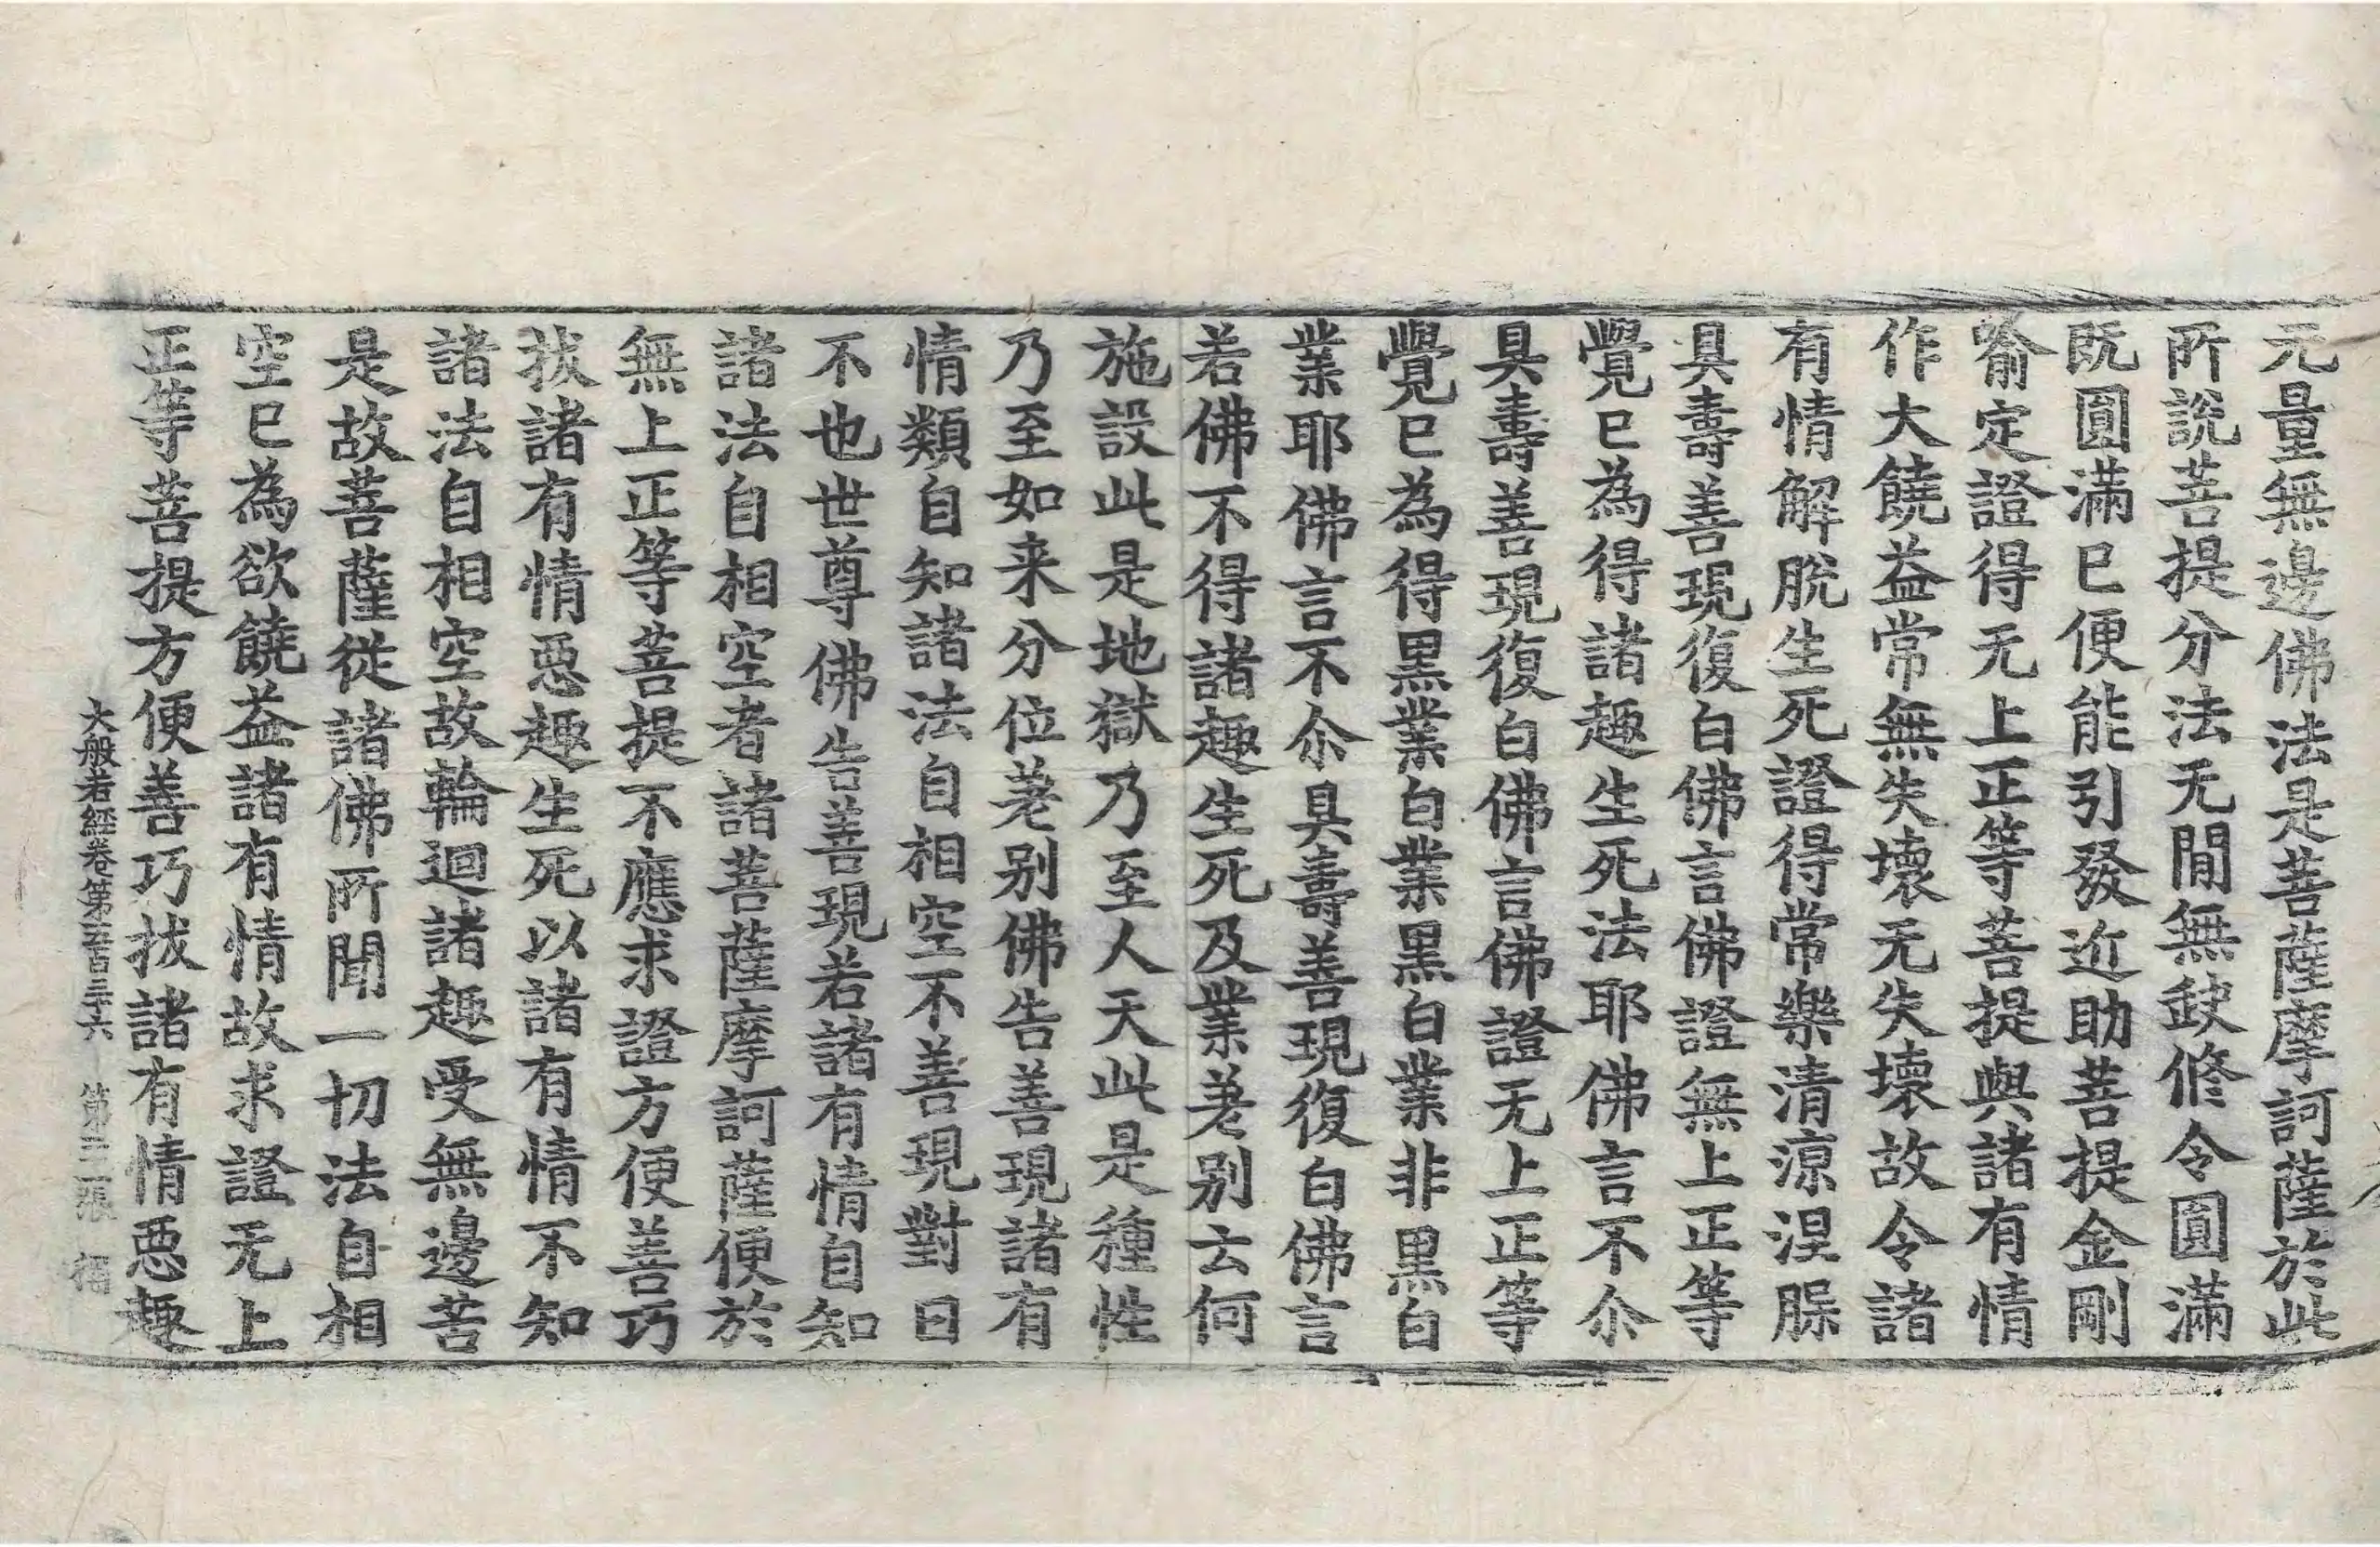 无量無邊佛法是菩薩摩訶薩於此
所說菩提分法无閒無缺修令圓滿
既圓滿已便能引發近助菩提金剛
喻定證得无上正等菩提與諸有情
作大饒益常無失壞无失壞故令諸
有情解脫生死證得常樂清涼涅槃
具壽善現復白佛言佛證無上正等
覺已為得諸趣生死法耶佛言不尒
具壽善現復白佛言佛證无上正等
覺已為得黑業白業黑白業非黑白
業耶佛言不尒具壽善現復白佛言
若佛不得諸趣生死及業差别云何
施設此是地獄乃至人天此是種性
乃至如来分位差别佛告善現諸有
情類自知諸法自相空不善現對曰
不也世尊佛告善現若諸有情自知
諸法自相空者諸菩薩摩訶薩便於
無上正等菩提不應求證方便善巧
拔諸有情惡趣生死以諸有情不知
諸法自相空故輪迴諸趣受無邊苦
是故菩薩從諸佛所聞一切法自相
空已為欲饒益諸有情故求證无上
正等菩提方便善巧拔諸有情惡趣
大般若經卷第五百三十六 第二張